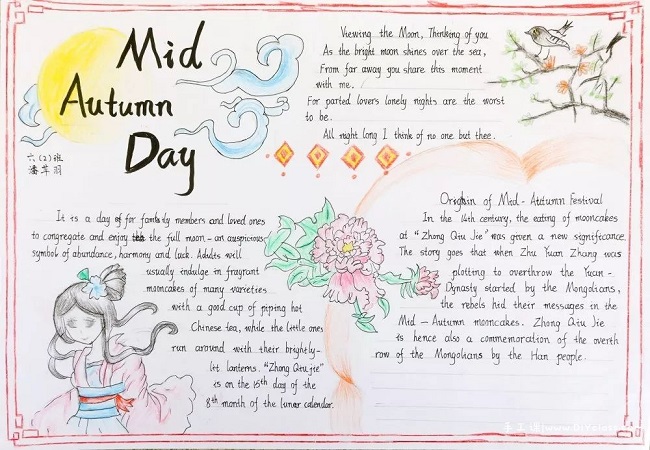 Mid
Autumn
Day
六(2)班
Viewing the Moon, Thinking of you
As the bright moon shines over the sea,
From far away you share this moment
with me.
For parted lovers lonely nights are the worst
to be.
All night long I think of no one but thee.
It is a day of for family members and loved ones
to congregate and enjoy the full moon - an auspicious
symbol of abundance, harmony and luck. Adults will
usually indulge in fragrant
mooncakes of many varieties
with a good cup of piping hot
Chinese tea, while the little ones
run around with their brightly-
lit lanterns. "Zhong Qiu jie"
is on the 15th day of the
8th month of the lunar calendar.
Origin of Mid-Autumn Festival
In the 14th century, the eating of mooncakes
at "Zhong Qiu Jie" was given a new significance
The story goes that when Zhu Yuan Zhang was
plotting to overthrow the Yuan-
Dynasty started by the Mongolians,
the rebels hid their messages in the
Mid - Autumn mooncakes. Zhong Qiu Jie
is hence also a commemoration of the overth
row of the Mongolians by the Han people.